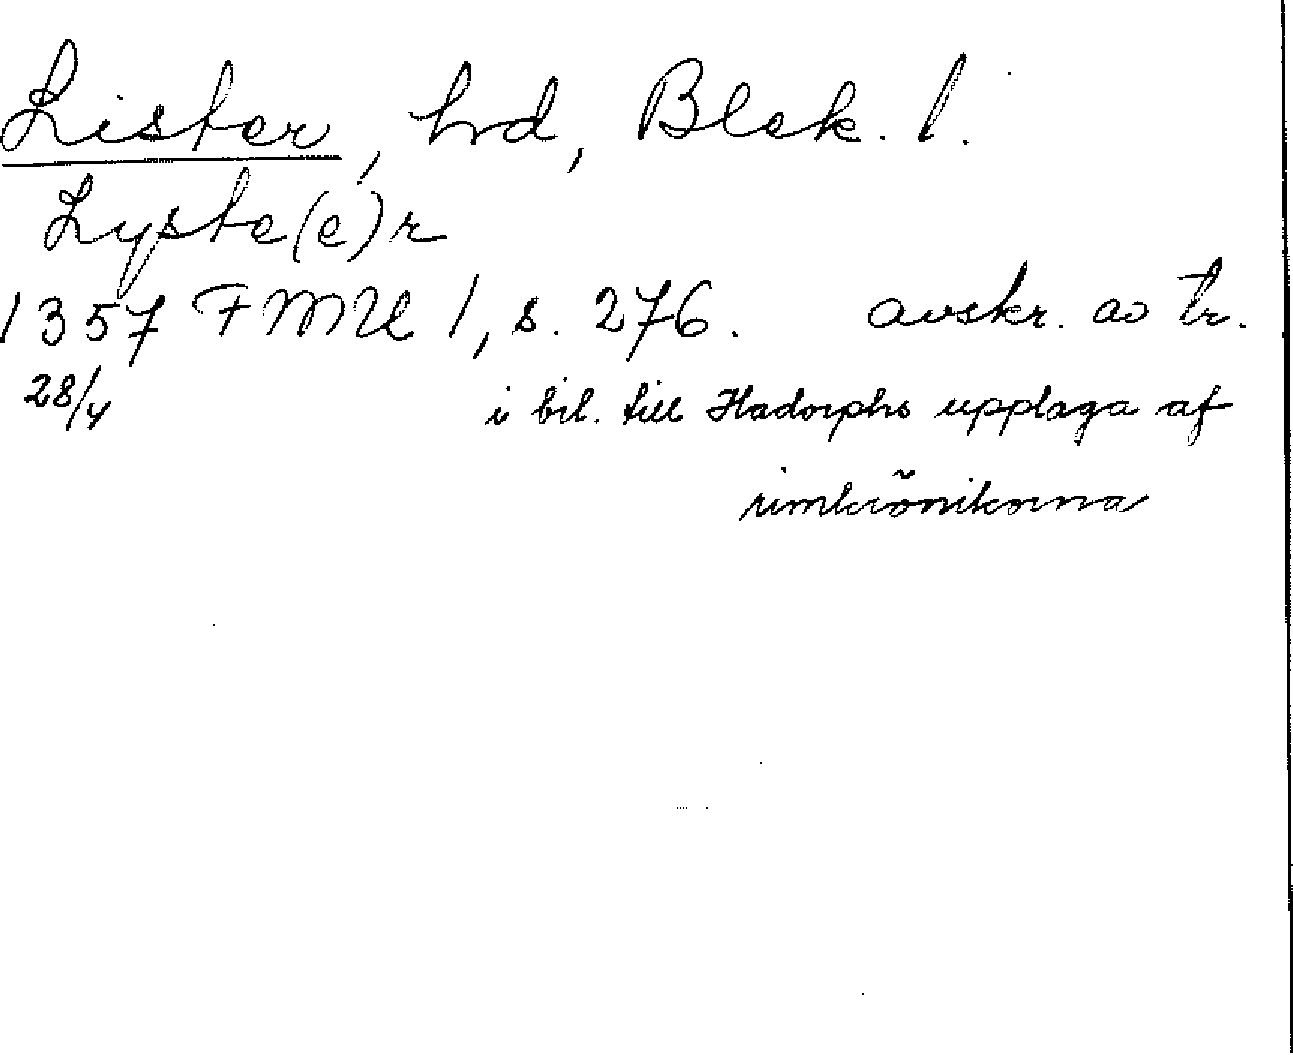 Lister, hd, Blek. l.
Lyste(e)r
1357 FMU 1, s. 276. avskr. av tr.
28/4 i bil. till Hadorphs upplaga af
rimkrönikorna